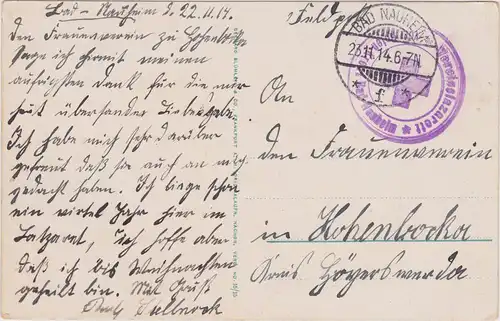 Bad-Nauheim d. 22.11.14.
Den Frauenverein zu Hohenbocka
sage ich hiermit meinen
aufrichtigsten Dank für die mir
übersandte Liebesgabe.
Ich habe mich sehr darüber
gefreut daß sie auch an mich
gedacht haben. Ich liege schon
ein viertel Jahr hier im
Latzaret, ich hoffe aber
daß ich bis Weihnachten
geheilt bin. Mit Gruß
Feldpost
BAD NAUHEIM
23.11.14.6-7N
* f *
An
den Frauenverein
in Hohenbocka
Kreis Hoyerswerda